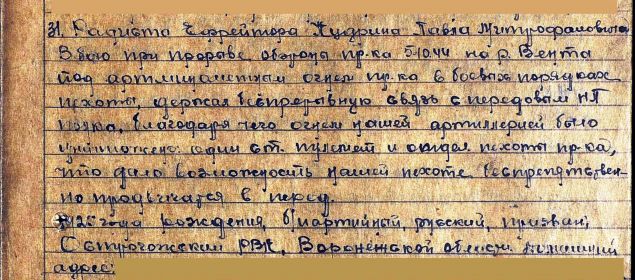 31. Радиста Ефрейтора Кудрина Павла Митрофановича
В бою при прорыве обороны пр-ка 5.10.44 на р. Вента
под артминометным огнем пр-ка в боевых порядках
пехоты, держал беспрерывную связь с передовым НП
полка, благодаря чего огнем нашей артилерией было
уничтожено: один ст. пулемет и отдел пехоты пр-ка,
что дало возможность нашей пехоте беспрепятствен-
но продвигатся в перед.
1925 года рождения, б/партийный, русский, призван,
РВК, Воронежской области. Домашний
адрес: